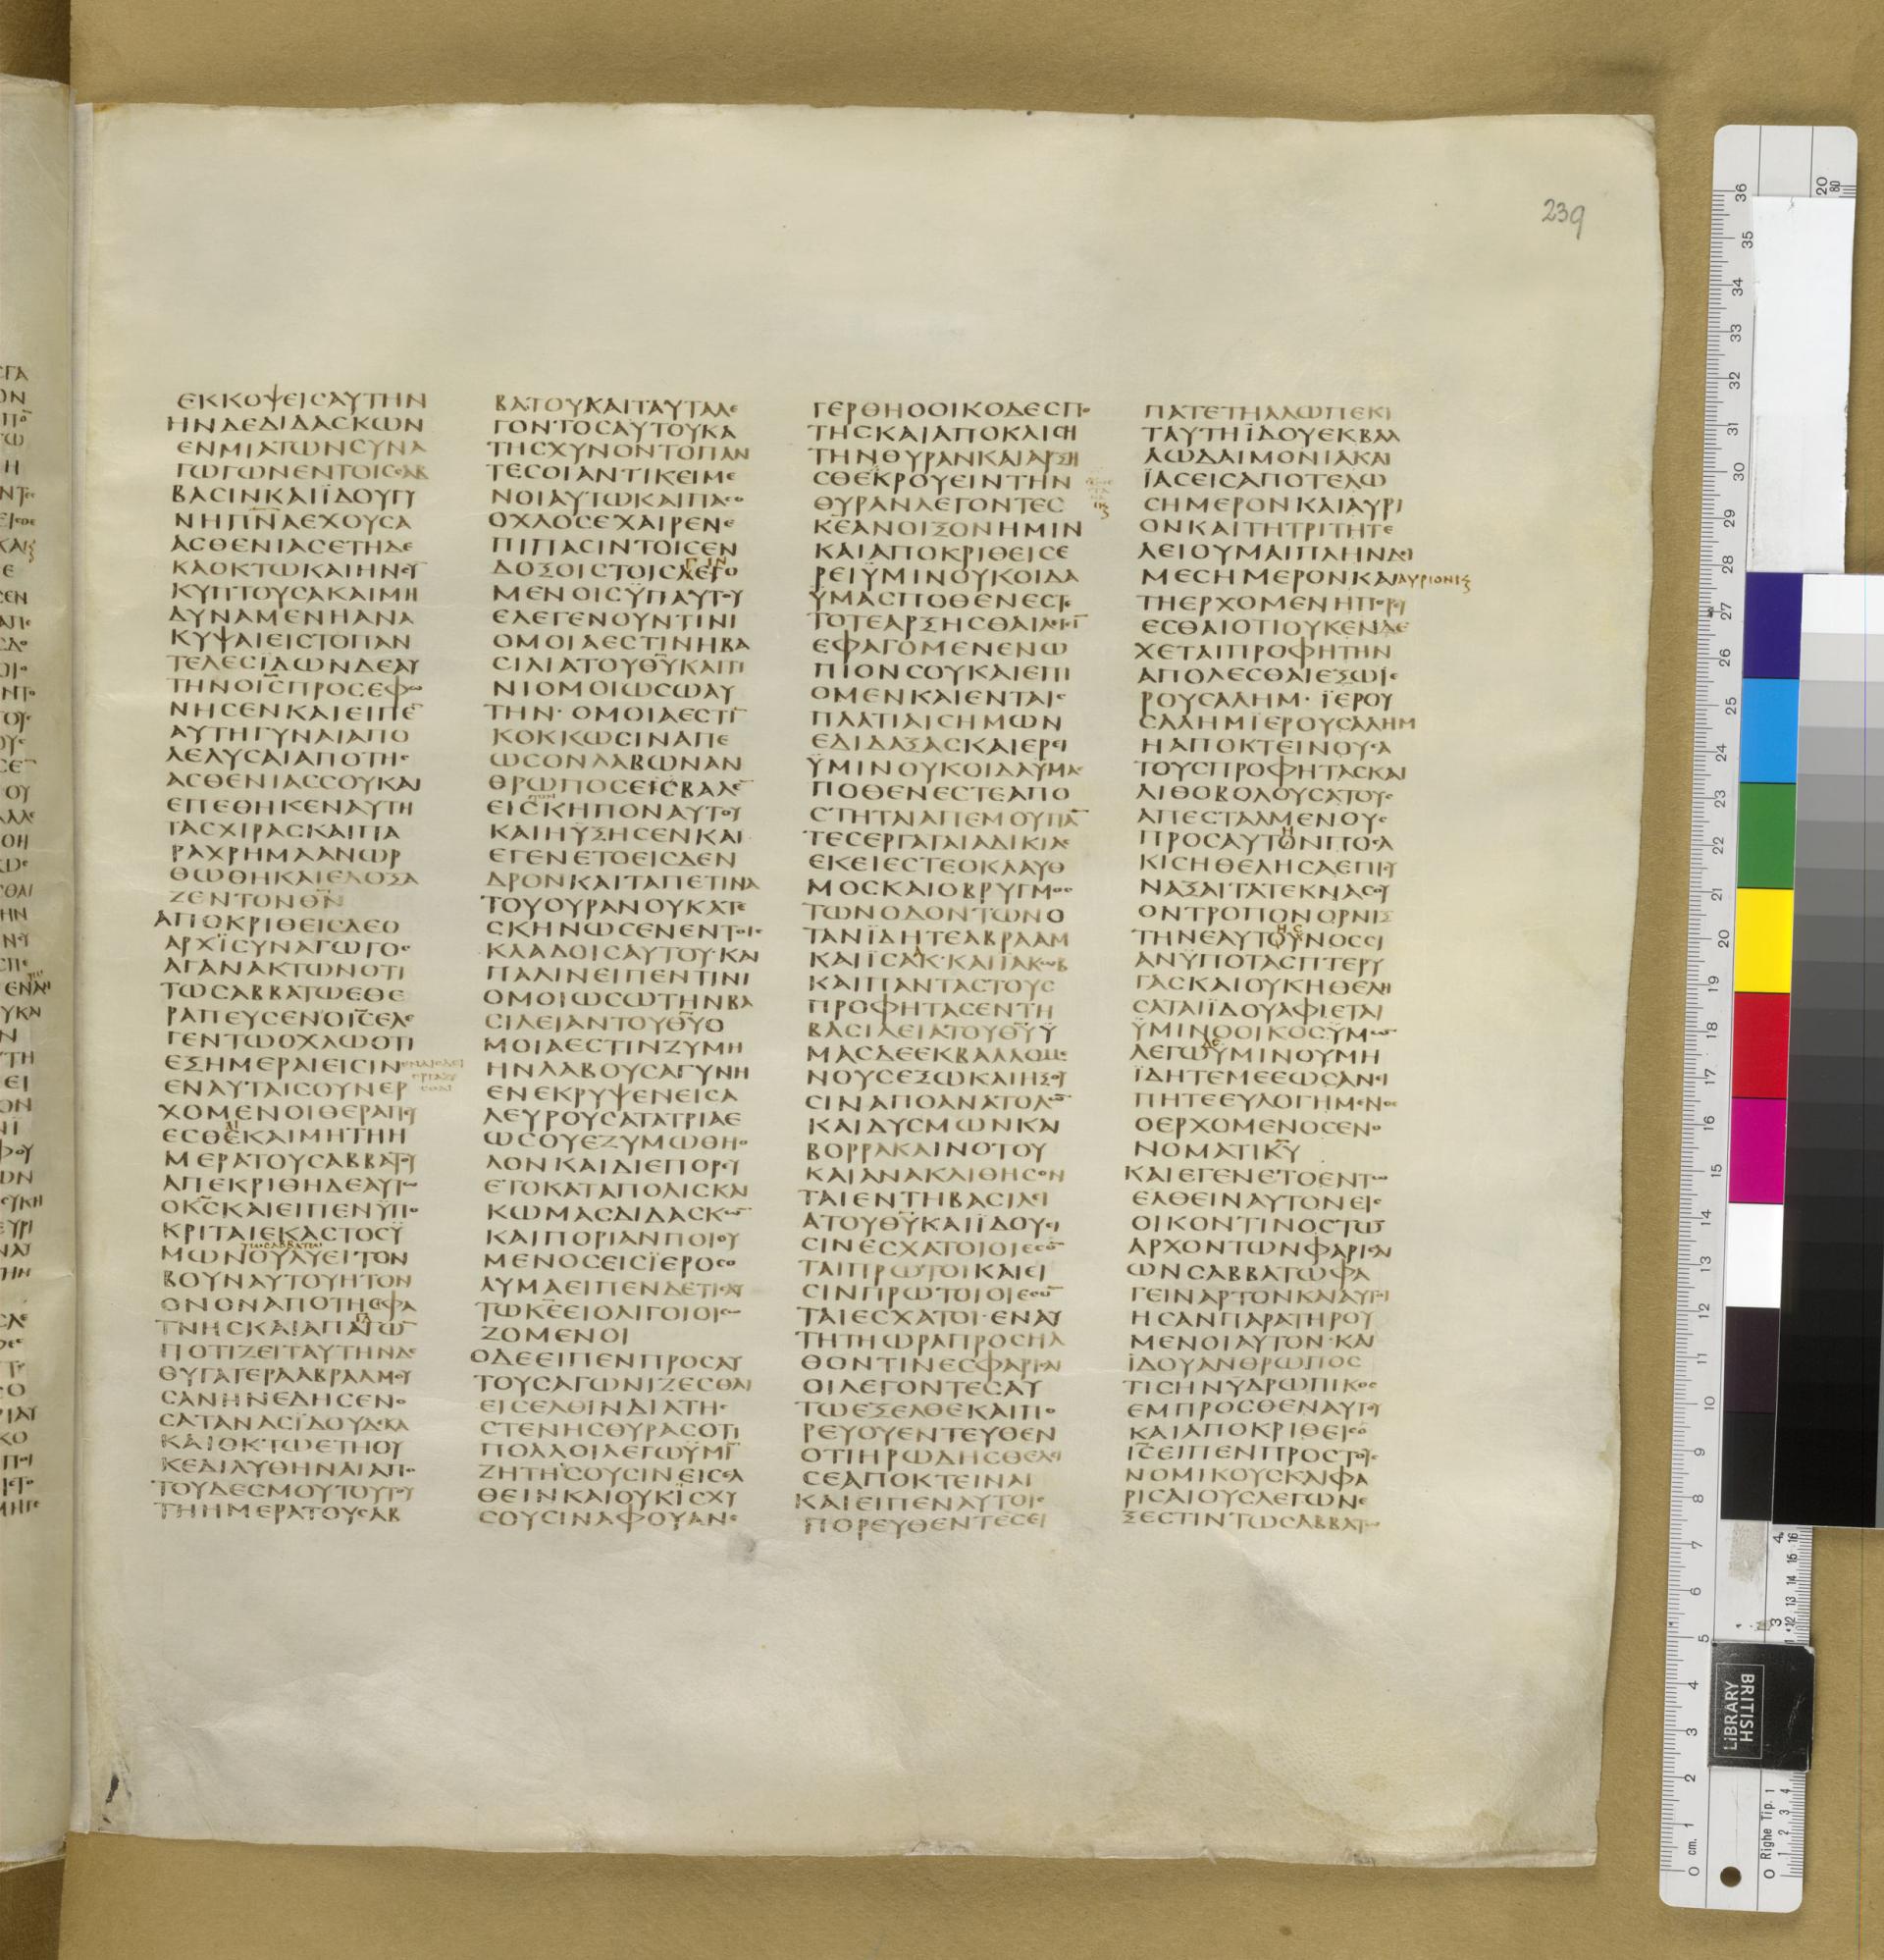 239
ΕΚΚΟΨΕΙϹΑΥΤΗΝ
ΗΝΔΕΔΙΔΑϹΚΩΝ
ΕΝΜΙΑΤΩΝϹΥΝΑ
ΓΩΓΩΝΕΝΤΟΙϹϹΑΒ
ΒΑϹΙΝΚΑΙΪΔΟΥΓΥ
ΝΗΠ̅Ν̅ΑΕΧΟΥϹΑ
ΑϹΘΕΝΙΑϹΕΤΗΔΕ
ΚΑΟΚΤΩΚΑΙΗΝϹΥ
ΚΥΠΤΟΥϹΑΚΑΙΜΗ
ΔΥΝΑΜΕΝΗΑΝΑ
ΚΥΨΑΙΕΙϹΤΟΠΑΝ
ΤΕΛΕϹΙΔΩΝΔΕΑΥ
ΤΗΝΟΙ̅Ϲ̅ΠΡΟϹΕΦΩ
ΝΗϹΕΝΚΑΙΕΙΠΕ̅
ΑΥΤΗΓΥΝΑΙΑΠΟ
ΛΕΛΥϹΑΙΑΠΟΤΗϹ
ΑϹΘΕΝΙΑϹϹΟΥΚΑΙ
ΕΠΕΘΗΚΕΝΑΥΤΗ
ΤΑϹΧΙΡΑϹΚΑΙΠΑ
ΡΑΧΡΗΜΑΑΝΩΡ
ΘΩΘΗΚΑΙΕΔΟΞΑ
ΖΕΝΤΟΝΘ̅Ν̅
ΑΠΟΚΡΙΘΕΙϹΔΕΟ
ΑΡΧΪϹΥΝΑΓΩΓΟϹ
ΑΓΑΝΑΚΤΩΝΟΤΙ
ΤΩϹΑΒΒΑΤΩΕΘΕ
ΡΑΠΕΥϹΕΝΟΙ̅Ϲ̅ΕΛΕ
ΓΕΝΤΩΟΧΛΩΟΤΙ
ΕΞΗΜΕΡΑΙΕΙϹΙΝ
ΕΝΑΥΤΑΙϹΟΥΝΕΡ
ΧΟΜΕΝΟΙΘΕΡΑΠΕΥ
ΕϹΘΕΚΑΙΜΗΤΗΗ
ΜΕΡΑΤΟΥϹΑΒΒΑΤΟΥ
ΑΠΕΚΡΙΘΗΔΕΑΥΤΩ
ΟΚ̅Ϲ̅ΚΑΙΕΙΠΕΝΫΠΟ
ΚΡΙΤΑΙΕΚΑϹΤΟϹΫ
ΤΩϹΑΒΒΑΤΩ
ΜΩΝΟΥΛΥΕΙΤΟΝ
ΒΟΥΝΑΥΤΟΥΗΤΟΝ
ΟΝΟΝΑΠΟΤΗϹΦΑ
ΤΝΗϹΚΑΙΑΠΑΓΩ̅
ΠΟΤΙΖΕΙΤΑΥΤΗΝΔΕ
ΘΥΓΑΤΕΡΑΑΒΡΑΑΜΟΥ
ϹΑΝΗΝΕΔΗϹΕΝΟ
ϹΑΤΑΝΑϹΪΔΟΥΔΕΚΑ
ΚΑΙΟΚΤΩΕΤΗΟΥ
ΚΕΔΙΛΥΘΗΝΑΙΑΠΟ
ΤΟΥΔΕϹΜΟΥΤΟΥΤΟΥ
ΤΗΗΜΕΡΑΤΟΥϹΑΒ
ΒΑΤΟΥΚΑΙΤΑΥΤΑΛΕ
ΓΟΝΤΟϹΑΥΤΟΥΚΑ
ΤΗϹΧΥΝΟΝΤΟΠΑΝ
ΤΕϹΟΙΑΝΤΙΚΕΙΜΕ
ΝΟΙΑΥΤΩΚΑΙΠΑϹΟ
ΟΧΛΟϹΕΧΑΙΡΕΝΕ
ΠΙΠΑϹΙΝΤΟΙϹΕΝ
ΔΟΞΟΙϹΤΟΙϹΛΕΓΟ
ΜΕΝΟΙϹΫΠΑΥΤΟΥ
ΕΛΕΓΕΝΟΥΝΤΙΝΙ
ΟΜΟΙΑΕϹΤΙΝΗΒΑ
ϹΙΛΙΑΤΟΥΘ̅Υ̅ΚΑΙΤΙ
ΝΙΟΜΟΙΩϹΩΑΥ
ΤΗΝ·ΟΜΟΙΑΕϹΤΙ̅
ΚΟΚΚΩϹΙΝΑΠΕ
ΩϹΟΝΛΑΒΩΝΑΝ
ΘΡΩΠΟϹΕΙϹΒΑΛΕ̅
ΕΙϹΚΗΠΟΝΑΥΤΟΥ
ΚΑΙΗΫΞΗϹΕΝΚΑΙ
ΕΓΕΝΕΤΟΕΙϹΔΕΝ
ΔΡΟΝΚΑΙΤΑΠΕΤΙΝΑ
ΤΟΥΟΥΡΑΝΟΥΚΑΤΕ
ϹΚΗΝΩϹΕΝΕΝΤΟΙϹ
ΚΛΑΔΟΙϹΑΥΤΟΥ·ΚΑΙ
ΠΑΛΙΝΕΙΠΕΝΤΙΝΙ
ΟΜΟΙΩϹΩΤΗΝΒΑ
ϹΙΛΕΙΑΝΤΟΥΘ̅Υ̅Ο
ΜΟΙΑΕϹΤΙΝΖΥΜΗ
ΗΝΛΑΒΟΥϹΑΓΥΝΗ
ΕΝΕΚΡΥΨΕΝΕΙϹΑ
ΛΕΥΡΟΥϹΑΤΑΤΡΙΑΕ
ΩϹΟΥΕΖΥΜΩΘΗΟ
ΛΟΝΚΑΙΔΙΕΠΟΡΕΥ
ΕΤΟΚΑΤΑΠΟΛΙϹΚΑΙ
ΚΩΜΑϹΔΙΔΑϹΚΩ̅
ΚΑΙΠΟΡΙΑΝΠΟΙΟΥ
ΜΕΝΟϹΕΙϹΪΕΡΟϹΟ
ΛΥΜΑΕΙΠΕΝΔΕΤΙϹΑΥ
ΤΩΚ̅Ε̅ΕΙΟΛΙΓΟΙΟΙϹΩ
ΖΟΜΕΝΟΙ
ΟΔΕΕΙΠΕΝΠΡΟϹΑΥ
ΤΟΥϹΑΓΩΝΙΖΕϹΘΑΙ
ΕΙϹΕΛΘΙΝΔΙΑΤΗϹ
ϹΤΕΝΗϹΘΥΡΑϹΟΤΙ
ΠΟΛΛΟΙΛΕΓΩΫΜΙ̅
ΖΗΤΗϹΟΥϹΙΝΕΙϹΕΛ
ΘΕΙΝΚΑΙΟΥΚΪϹΧΥ
ϹΟΥϹΙΝΑΦΟΥΑΝΕ
ΓΕΡΘΗΟΟΙΚΟΔΕϹΠΟ
ΤΗϹΚΑΙΑΠΟΚΛΙϹΗ
ΤΗΝΘΥΡΑΝΚΑΙΑΡΞΗ
ϹΘΕΚΡΟΥΕΙΝΤΗΝ
ΘΥΡΑΝΛΕΓΟΝΤΕϹ
Κ̅Ε̅ΑΝΟΙΞΟΝΗΜΙΝ
ΚΑΙΑΠΟΚΡΙΘΕΙϹΕ
ΡΕΙΫΜΙΝΟΥΚΟΙΔΑ
ΫΜΑϹΠΟΘΕΝΕϹΤΕ
ΤΟΤΕΑΡΞΗϹΘΑΙΛΕΓΙ̅
ΕΦΑΓΟΜΕΝΕΝΩ
ΠΙΟΝϹΟΥΚΑΙΕΠΙ
ΟΜΕΝΚΑΙΕΝΤΑΙϹ
ΠΛΑΤΙΑΙϹΗΜΩΝ
ΕΔΙΔΑΞΑϹΚΑΙΕΡΕΙ
ΫΜΙΝΟΥΚΟΙΔΑΫΜΑϹ
ΠΟΘΕΝΕϹΤΕΑΠΟ
ϹΤΗΤΑΙΑΠΕΜΟΥΠΑ̅
ΤΕϹΕΡΓΑΤΑΙΑΔΙΚΙΑϹ
ΕΚΕΙΕϹΤΕΟΚΛΑΥΘ
ΜΟϹΚΑΙΟΒΡΥΓΜΟϹ
ΤΩΝΟΔΟΝΤΩΝΟ
ΤΑΝΪΔΗΤΕΑΒΡΑΑΜ
ΚΑΙΪϹΑΚ·ΚΑΙΪΑΚΩΒ
ΚΑΙΠΑΝΤΑϹΤΟΥϹ
ΠΡΟΦΗΤΑϹΕΝΤΗ
ΒΑϹΙΛΕΙΑΤΟΥΘ̅Υ̅Ϋ
ΜΑϹΔΕΕΚΒΑΛΛΟΜΕ
ΝΟΥϹΕΞΩΚΑΙΗΞΟΥ
ϹΙΝΑΠΟΑΝΑΤΟΛΩ̅
ΚΑΙΔΥϹΜΩΝΚΑΙ
ΒΟΡΡΑΚΑΙΝΟΤΟΥ
ΚΑΙΑΝΑΚΛΙΘΗϹΟΝ
ΤΑΙΕΝΤΗΒΑϹΙΛΕΙ
ΑΤΟΥΘ̅Υ̅ΚΑΙΪΔΟΥΕΙ
ϹΙΝΕϹΧΑΤΟΙΟΙΕϹΟ̅
ΤΑΙΠΡΩΤΟΙΚΑΙΕΙ
ϹΙΝΠΡΩΤΟΙΟΙΕϹΟ̅
ΤΑΙΕϹΧΑΤΟΙ·ΕΝΑΥ
ΤΗΤΗΩΡΑΠΡΟϹΗΛ
ΘΟΝΤΙΝΕϹΦΑΡΙϹΑΙ
ΟΙΛΕΓΟΝΤΕϹΑΥ
ΤΩΕΞΕΛΘΕΚΑΙΠΟ
ΡΕΥΟΥΕΝΤΕΥΘΕΝ
ΟΤΙΗΡΩΔΗϹΘΕΛΕΙ
ϹΕΑΠΟΚΤΕΙΝΑΙ
ΚΑΙΕΙΠΕΝΑΥΤΟΙϹ
ΠΟΡΕΥΘΕΝΤΕϹΕΙ
ΠΑΤΕΤΗΑΛΩΠΕΚΙ
ΤΑΥΤΗΪΔΟΥΕΚΒΑΛ
ΛΩΔΑΙΜΟΝΙΑΚΑΙ
ΪΑϹΕΙϹΑΠΟΤΕΛΩ
ϹΗΜΕΡΟΝΚΑΙΑΥΡΙ
ΟΝΚΑΙΤΗΤΡΙΤΗΤΕ
ΛΕΙΟΥΜΑΙΠΛΗΝΔΕΙ
ΜΕϹΗΜΕΡΟΝΚΑΙΑΥΡΙΟΝΚ
ΤΗΕΡΧΟΜΕΝΗΠΟΡΕΥ
ΕϹΘΑΙΟΤΙΟΥΚΕΝΔΕ
ΧΕΤΑΙΠΡΟΦΗΤΗΝ
ΑΠΟΛΕϹΘΑΙΕΞΩΪΕ
ΡΟΥϹΑΛΗΜ·ΪΕΡΟΥ
ϹΑΛΗΜΪΕΡΟΥϹΑΛΗΜ
ΗΑΠΟΚΤΕΙΝΟΥϹΑ
ΤΟΥϹΠΡΟΦΗΤΑϹΚΑΙ
ΛΙΘΟΒΟΛΟΥϹΑΤΟΥϹ
ΑΠΕϹΤΑΛΜΕΝΟΥϹ
ΠΡΟϹΑΥΤΟΝΠΟϹΑ
ΚΙϹΗΘΕΛΗϹΑΕΠΙϹΥ
ΝΑΞΑΙΤΑΤΕΚΝΑϹΟΥ
ΟΝΤΡΟΠΟΝΟΡΝΙΞ
ΤΗΝΕΑΥΤΟΥΝΟϹϹΙ
ΑΝΫΠΟΤΑϹΠΤΕΡΥ
ΓΑϹΚΑΙΟΥΚΗΘΕΛΗ
ϹΑΤΑΙΪΔΟΥΑΦΙΕΤΑΙ
ΫΜΙΝΟΟΙΚΟϹΫΜΩ̅
ΛΕΓΩΫΜΙΝΟΥΜΗ
ΪΔΗΤΕΜΕΕΩϹΑΝΕΙ
ΠΗΤΕΕΥΛΟΓΗΜΕΝΟϹ
ΟΕΡΧΟΜΕΝΟϹΕΝΟ
ΝΟΜΑΤΙΚ̅Υ̅
ΚΑΙΕΓΕΝΕΤΟΕΝΤΩ
ΕΛΘΕΙΝΑΥΤΟΝΕΙϹ
ΟΙΚΟΝΤΙΝΟϹΤΩ̅
ΑΡΧΟΝΤΩΝΦΑΡΙϹΑΙ
ΩΝϹΑΒΒΑΤΩΦΑ
ΓΕΙΝΑΡΤΟΝΚΑΙΑΥΤΟΙ
ΗϹΑΝΠΑΡΑΤΗΡΟΥ
ΜΕΝΟΙΑΥΤΟΝ·ΚΑΙ
ΪΔΟΥΑΝΘΡΩΠΟϹ
ΤΙϹΗΝΫΔΡΩΠΙΚΟϹ
ΕΜΠΡΟϹΘΕΝΑΥΤΟΥ
ΚΑΙΑΠΟΚΡΙΘΕΙϹΟ
Ι̅Ϲ̅ΕΙΠΕΝΠΡΟϹΤΟΥϹ
ΝΟΜΙΚΟΥϹΚΑΙΦΑ
ΡΙϹΑΙΟΥϹΛΕΓΩΝΕ
ΞΕϹΤΙΝΤΩϹΑΒΒΑΤΩ
BRITISH
LIBRARY
0 cm. 1 2 3 4 5 6 7 8 9 10 11 12 13 14 15 16 17 18 19 20 21 22 23 24 25 26 27 28 29 30 31 32 33 34 35 36
0 Righe Tip. 1